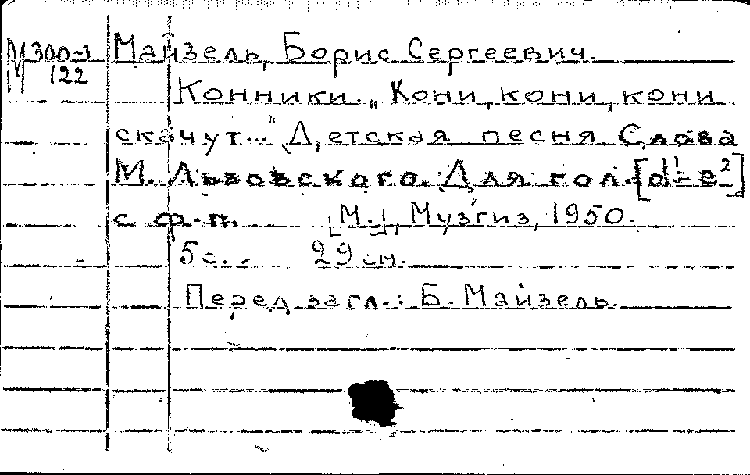 М300-3 Майзель, Борис Сергеевич.
122
Конники. „Кони, кони, кони
скачут..." Детская песня. Слова
М. Львовского. Для гол. [d¹-e²]
с ф.-п. [М.], Музгиз, 1950.
5 с. 29 см.
Перед загл.: Б. Майзель.